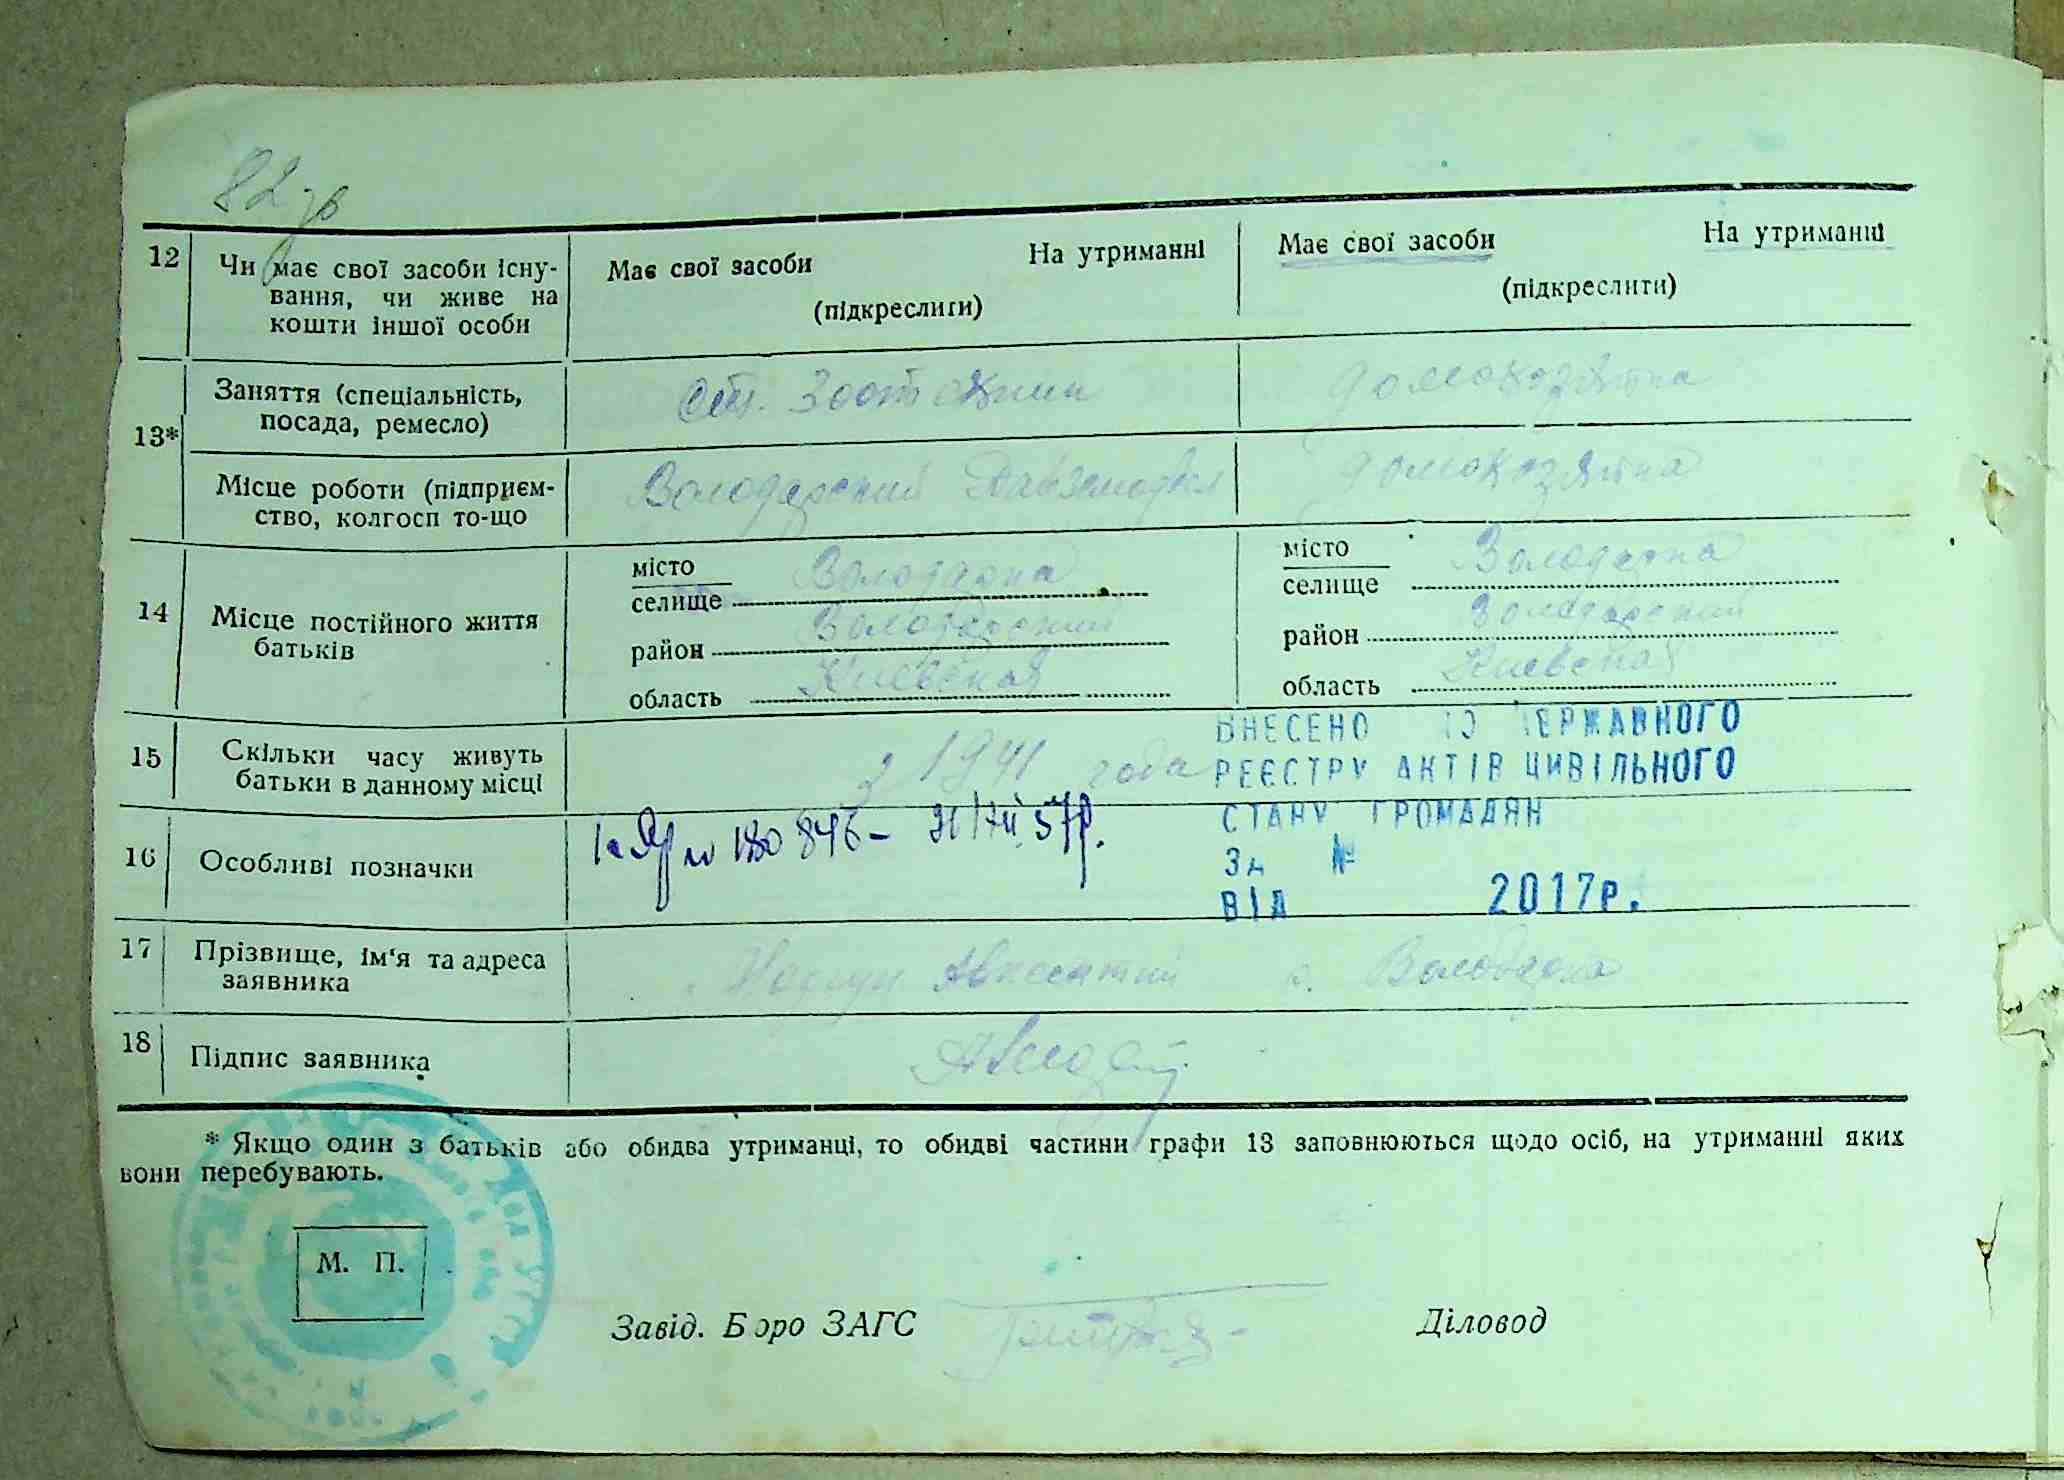 82 зв
12 Чи має свої засоби існу-
вання, чи живе на
кошти іншої особи
Має свої засоби На утриманні
(підкреслити)
Має свої засоби На утриманні
(підкреслити)
13*
Заняття (спеціальність,
посада, ремесло)
ст. Зоотехник
домохозяйка
Місце роботи (підприєм-
ство, колгосп то-що
Володарский
домохозяйка
14 Місце постійного життя
батьків
місто
селище Володарка
район Володарский
область Киевская
місто
селище Володарка
район Володарский
область Киевская
15 Скільки часу живуть
батьки в данному місці
з 1941 года
ВНЕСЕНО ДО ДЕРЖАВНОГО
РЕЄСТРУ АКТІВ ЦИВІЛЬНОГО
СТАНУ ГРОМАДЯН
ЗА №
ВІД 2017р.
16 Особливі позначки
180846 – 57р.
17 Прізвище, ім'я та адреса
заявника
Авксентий с. Володарка
18 Підпис заявника
* Якщо один з батьків або обидва утриманці, то обидві частини графи 13 заповнюються щодо осіб, на утриманні яких
вони перебувають.
М. П.
Завід. Бюро ЗАГС
Діловод